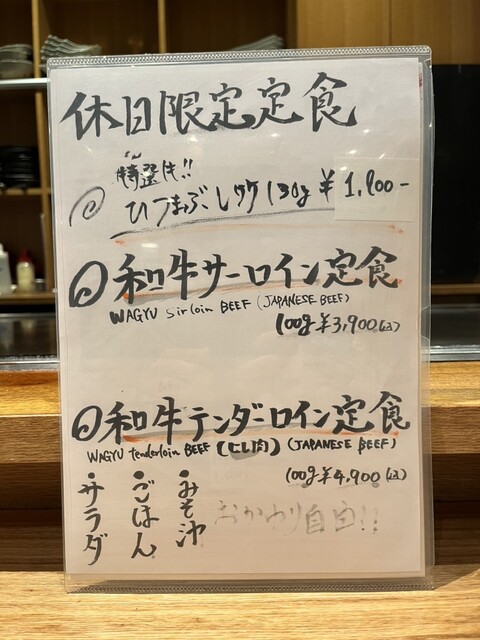 休日限定定食
特選牛!!
ひつまぶし 130g ¥1,900-
和牛サーロイン定食
WAGYU sirloin BEEF (JAPANESE BEEF)
100g ¥3,900(込)
和牛テンダーロイン定食
WAGYU tenderloin BEEF 【ヒレ肉】 (JAPANESE BEEF)
100g ¥4,900(込)
・みそ汁
・ごはん
・サラダ
おかわり自由!!